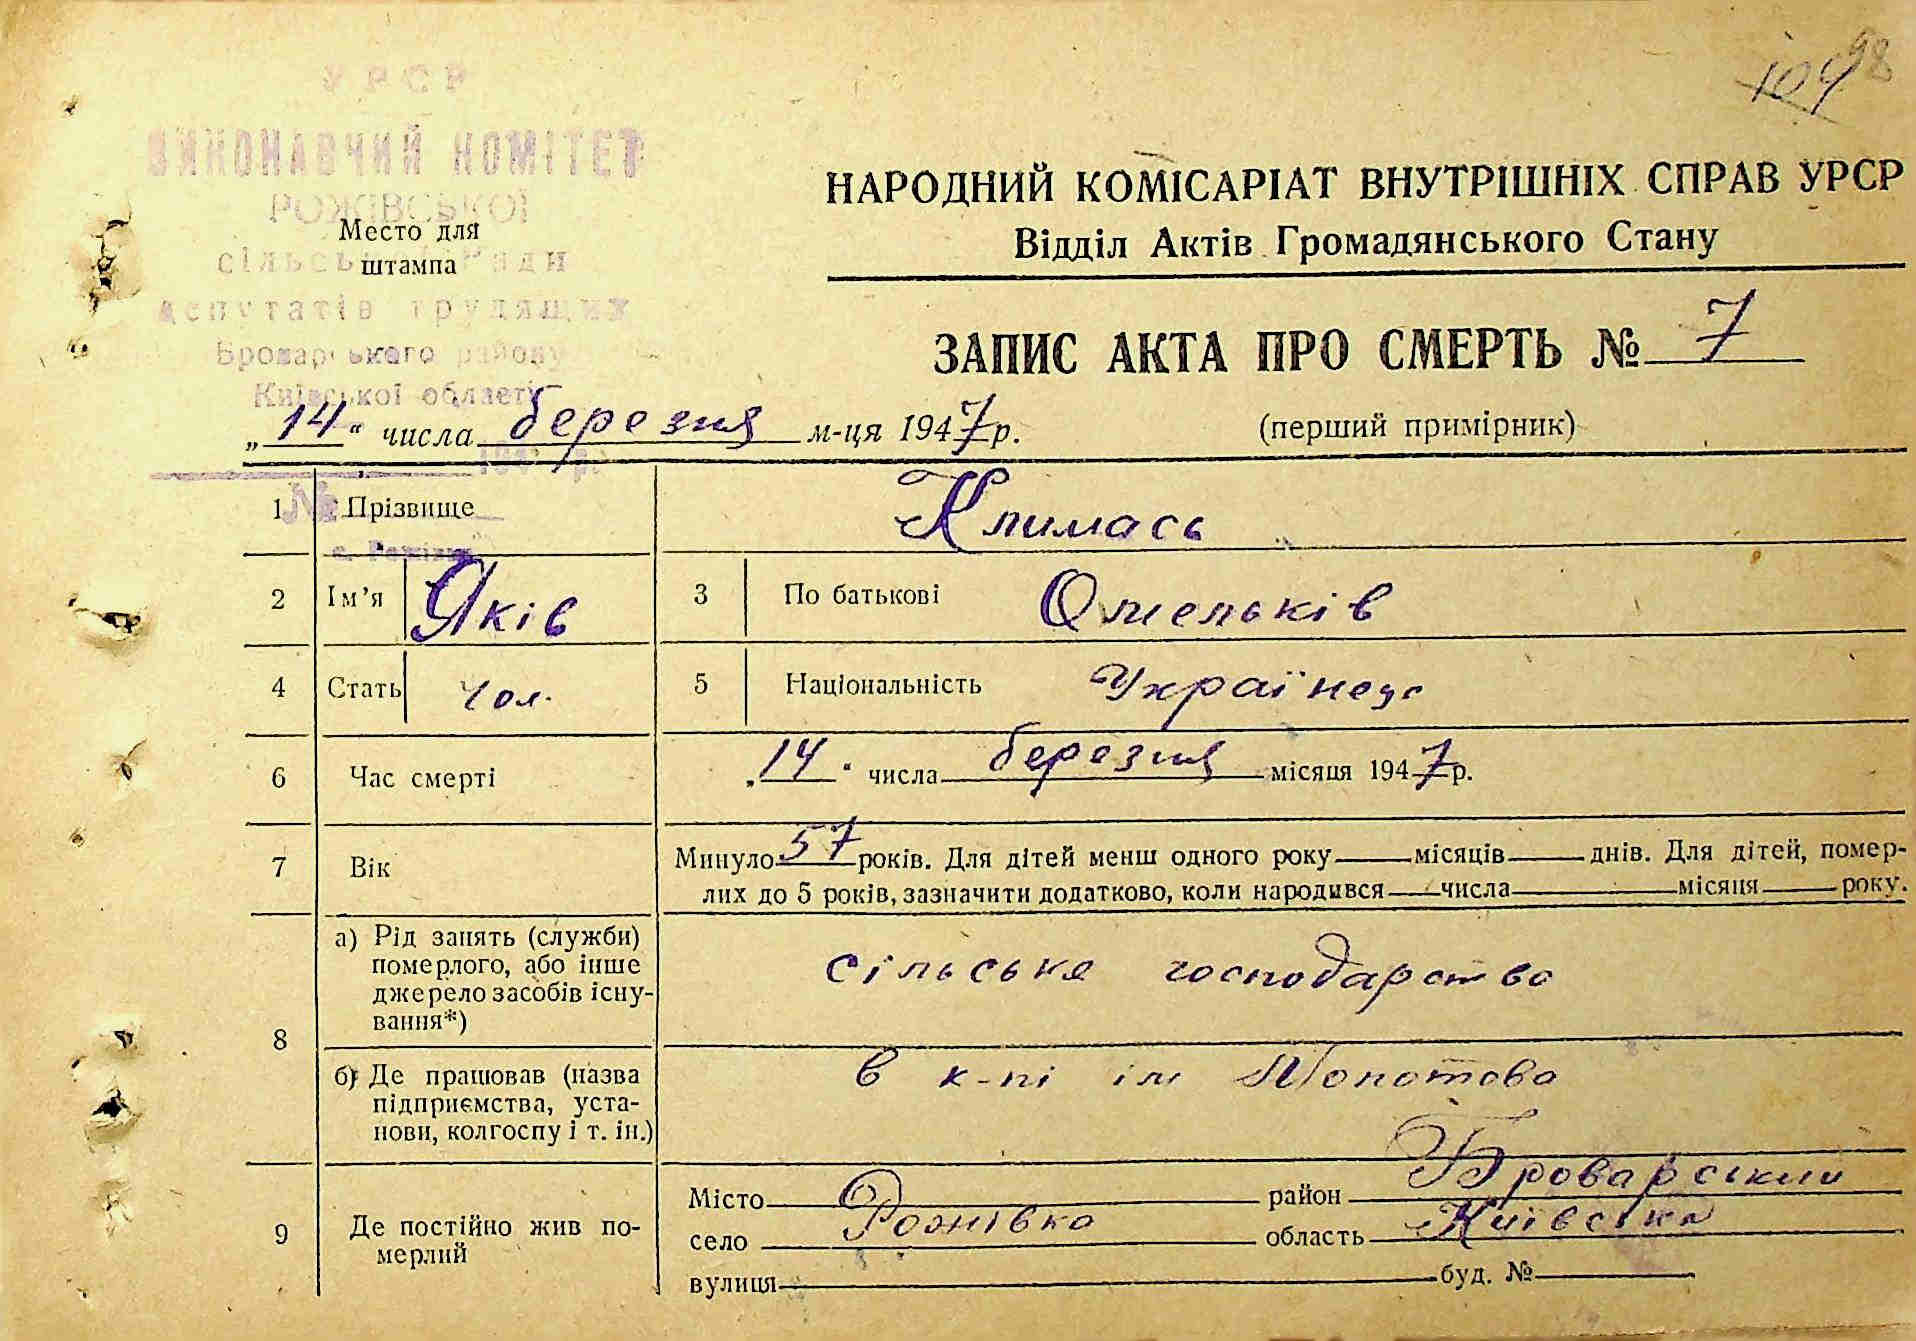 98
104
УРСР
ВИКОНАВЧИЙ КОМІТЕТ
РОЖІВСЬКОЇ
сільської Ради
депутатів трудящих
Броварського району
Київської області
194 р.
№
Место для
штампа
НАРОДНИЙ КОМІСАРІАТ ВНУТРІШНІХ СПРАВ УРСР
Відділ Актів Громадянського Стану
ЗАПИС АКТА ПРО СМЕРТЬ № 7
„14“ числа березня м-ця 1947 р.
(перший примірник)
1 Прізвище Климась
2 Ім’я Яків 3 По батькові Омельків
4 Стать Чол. 5 Національність Українець
6 Час смерті „14“ числа березня місяця 1947 р.
7 Вік Минуло 57 років. Для дітей менш одного року місяців днів. Для дітей, помер-
лих до 5 років, зазначити додатково, коли народився числа місяця року.
8 а) Рід занять (служби)
померлого, або інше
джерело засобів існу-
вання*)
сільське господарство
б) Де працював (назва
підприємства, уста-
нови, колгоспу і т. ін.)
в к-пі ім Молотова
9 Де постійно жив по-
мерлий
Місто район Броварський
село Рожівка область Київська
вулиця буд. №